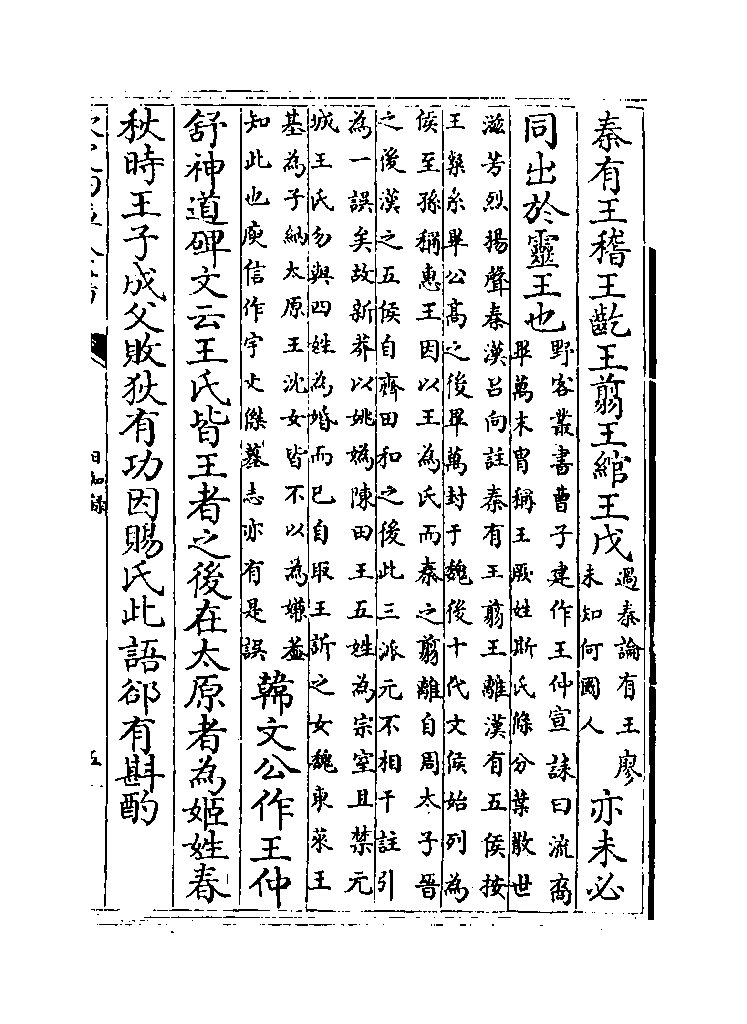 秦有王稽王齕王翦王綰王戊過秦論有王廖未知何國人亦未必
同出於靈王也野客叢書曹子建作王仲宣誄曰流裔畢萬末胄稱王厥姓斯氏條分葉散世
滋芳烈揚聲秦漢呂向註秦有王翦王離漢有五侯按
王粲系畢公高之後畢萬封于魏後十代文侯始列為
侯至孫稱惠王因以王為氏而秦之翦離自周太子晉
之後漢之五侯自齊田和之後此三派元不相干註引
為一誤矣故新莽以姚媯陳田王五姓為宗室且禁元
城王氏勿與四姓為婚而已自取王訢之女魏東萊王
基為子納太原王沈女皆不以為嫌蓋
知此也庾信作宇文傑墓志亦有是誤韓文公作王仲
舒神道碑文云王氏皆王者之後在太原者為姬姓春
秋時王子成父敗狄有功因賜氏此語郤有斟酌
日知錄
五